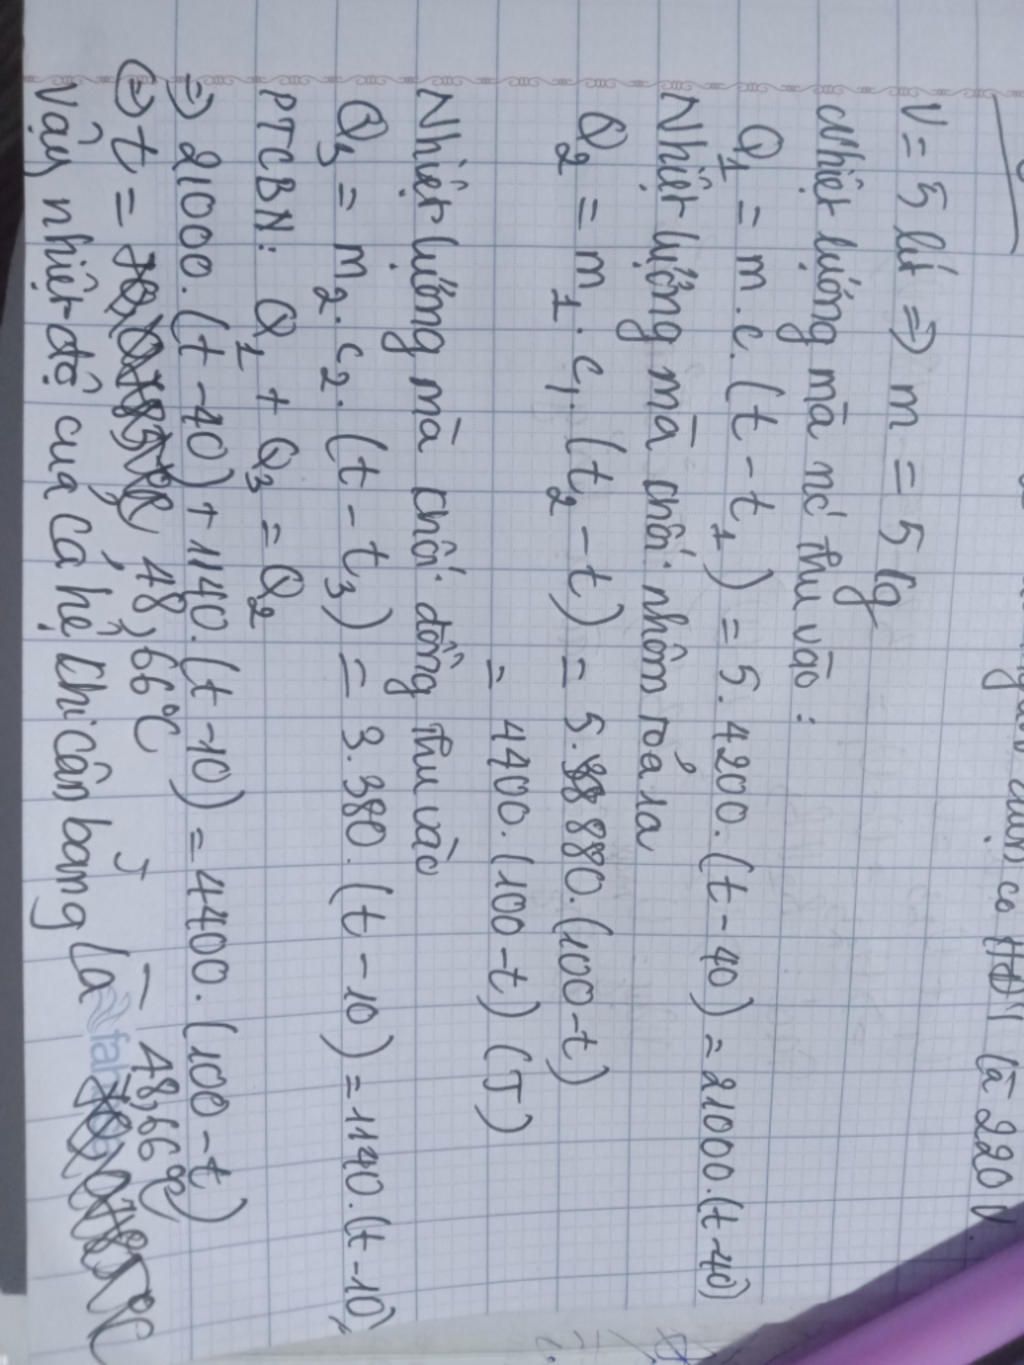 điện có HĐT là 220 V.
V = 5 lít => m = 5 kg
Nhiệt lượng mà nc' thu vào :
Q1 = m.c.(t - t1) = 5.4200.(t - 40) = 21000.(t-40)
Nhiệt lượng mà chối nhôm toả ra
Q2 = m1.c1.(t2 - t) = 5.880.(100-t)
= 4400.(100-t) (J)
Nhiệt lượng mà chối đồng thu vào
Q3 = m2.c2.(t - t3) = 3.380.(t - 10) = 1140.(t-10)
PTCBN: Q1 + Q3 = Q2
=> 21000.(t-40) + 1140.(t-10) = 4400.(100-t)
<=> t = 48,66°C
Vậy nhiệt độ của cả hệ khi cân bằng là 48,66°C